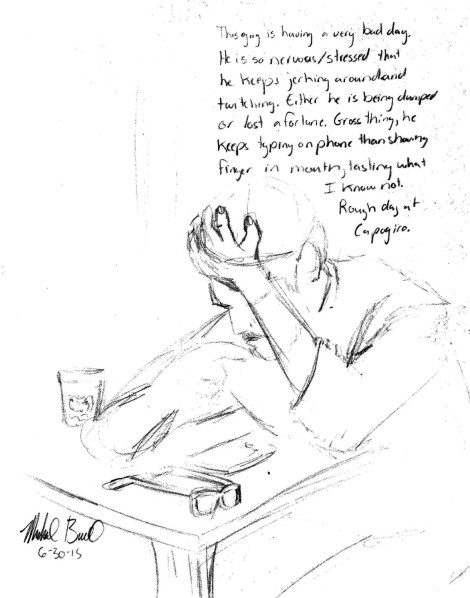 This guy is having a very bad day.
He is so nervous/stressed that
he keeps jerking around and
twitching. Either he is being dumped
or lost a fortune. Gross thing, he
keeps typing on phone than shoving
finger in mouth, tasting what
I know not.
Rough day at
Capogiro.
6-30-15